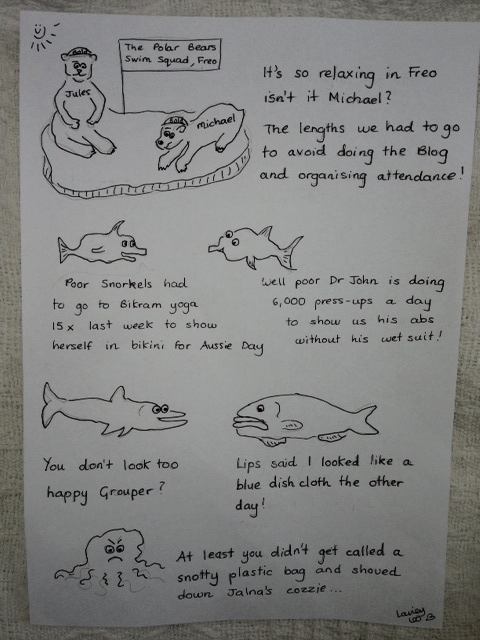 The Polar Bears
Swim Squad, Freo
Bold
Jules
Bold
Michael
It's so relaxing in Freo
isn't it Michael?
The lengths we had to go
to avoid doing the Blog
and organising attendance!
Poor Snorkels had
to go to Bikram yoga
15x last week to show
herself in bikini for Aussie Day
Well poor Dr John is doing
6,000 press-ups a day
to show us his abs
without his wet suit!
You don't look too
happy Grouper?
Lips said I looked like a
blue dish cloth the other
day!
At least you didn't get called a
snotty plastic bag and shoved
down Jalna's cozzie...